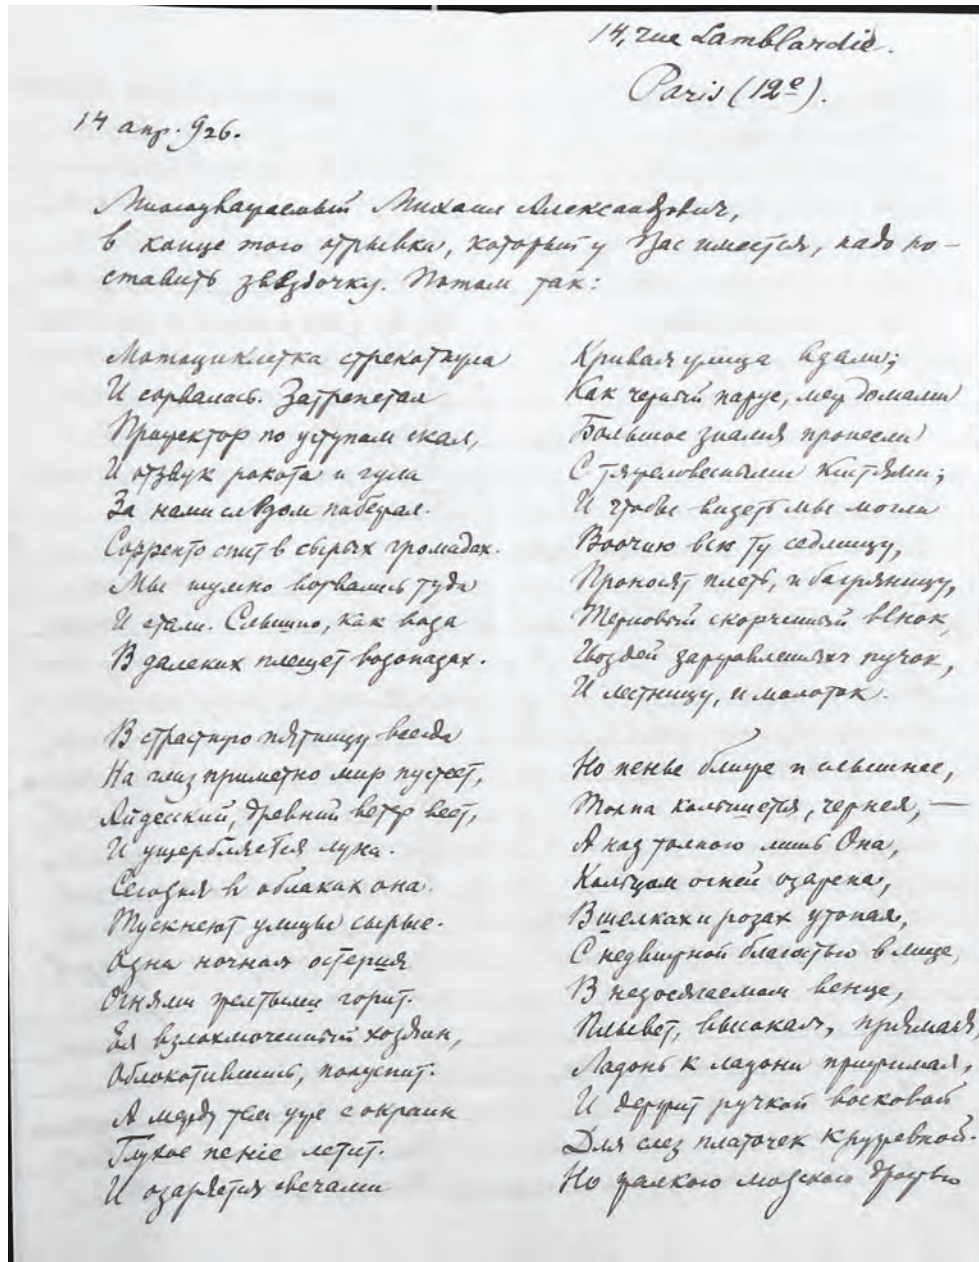 14, rue Lamblardie.
Paris (12e).
14 апр. 926.
Многоуважаемый Михаил Александрович,
в конце того отрывка, который у Вас имеется, надо по-
ставить звѣздочку. Потом так:
Мотоциклетка стрекотнула
И сорвалась. Затрепетал
Прожектор по уступам скал,
И отзвук рокота и гула
За нами следом побежал.
Сорренто спит в сырых громадах.
Мы шумно ворвались туда
И стали. Слышно, как вода
В далеких плещет водопадах.
В страстную пятницу всегда
На глаз приметно мир пустеет,
Айдесский, древний ветр веет,
И ущербляется луна.
Сегодня в облаках она.
Тускнеют улицы сырые.
Одна ночная остерия
Огнями желтыми горит.
Ея взлохмоченный хозяин,
Облокотившись, полуспит.
А между тем уже с окраин
Глухое пение летит.
И озаряется свечами
Кривая улица вдали;
Как черный парус, меж домами
Большое знамя пронесли
С тяжеловесными кистями;
И чтобы видеть мы могли
Воочию всю ту седмицу,
Проносят плеть, и багряницу,
Терновый скорченный вѣнок,
Гвоздей заржавленных пучок,
И лестницу, и молоток.
Но пенье ближе и слышнее,
Толпа колышется, чернея, —
А над толпою лишь Она,
Кольцом огней озарена,
В шелках и розах утопая,
С недвижной благостью в лице,
В недосягаемом венце,
Плывет, высокая, прямая,
Ладонь к ладони прижимая,
И держит ручкой восковой
Для слез платочек кружевной.
Но жалкою людскою дрожью